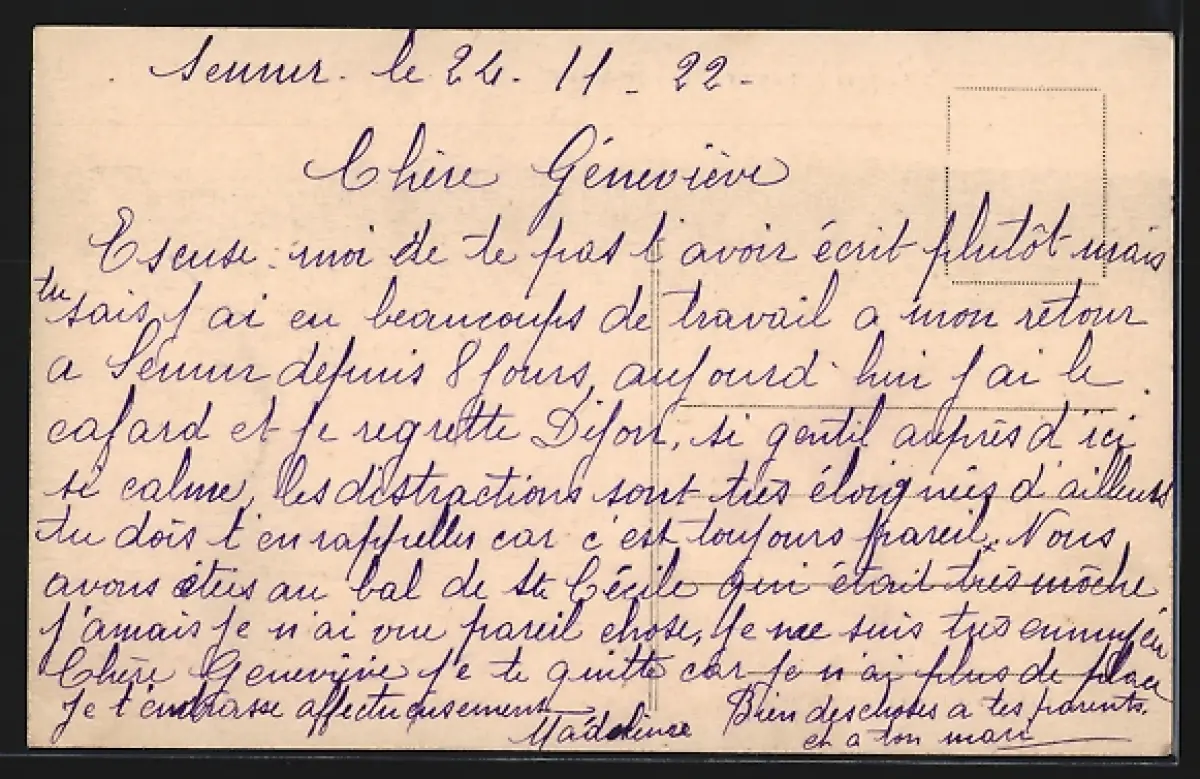 Semur. le 24. 11 - 22 -
Chère Géneviève
Escuse-moi de te pas t'avoir écrit plutôt mais
tu sais j'ai eu beaucoups de travail a mon retour
a Semur depuis 8 jours, aujourd'hui j'ai le
cafard et je regrette Dijon, si gentil auprès d'ici
si calme, les distractions sont très éloignées d'ailleurs
tu dois t'en rappeller car c'est toujours pareil. Nous
avons étées au bal de Ste Cécile qui était très môche
j'amais je n'ai vue pareil chose, je me suis très ennuyée
Chère Geneviève je te quitte car je n'ai plus de place
je t'embrasse affectueusement
Madeleine
Bien des choses a tes parents.
et a ton mari